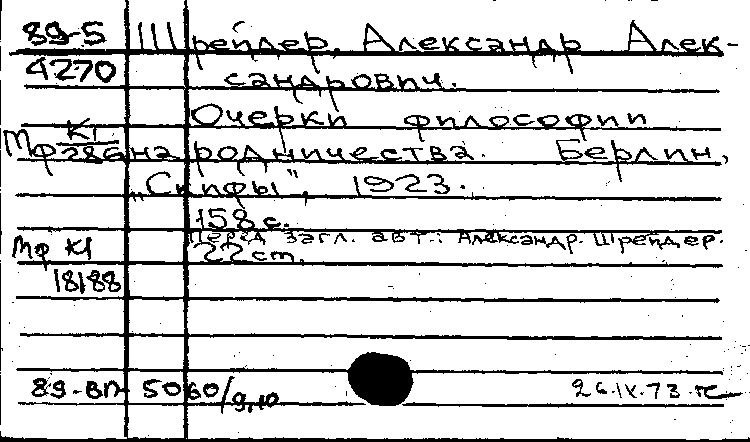 89-5 Шрейдер, Александр Алек-
4270 сандрович.
Очерки философии
Мф К1/286 народничества. Берлин,
„Скифы", 1923.
158 с.
Перед загл. авт.: Александр Шрейдер.
Мф К1 22 cm.
18188
89-ВП 5060/9,10 26.IX.73.